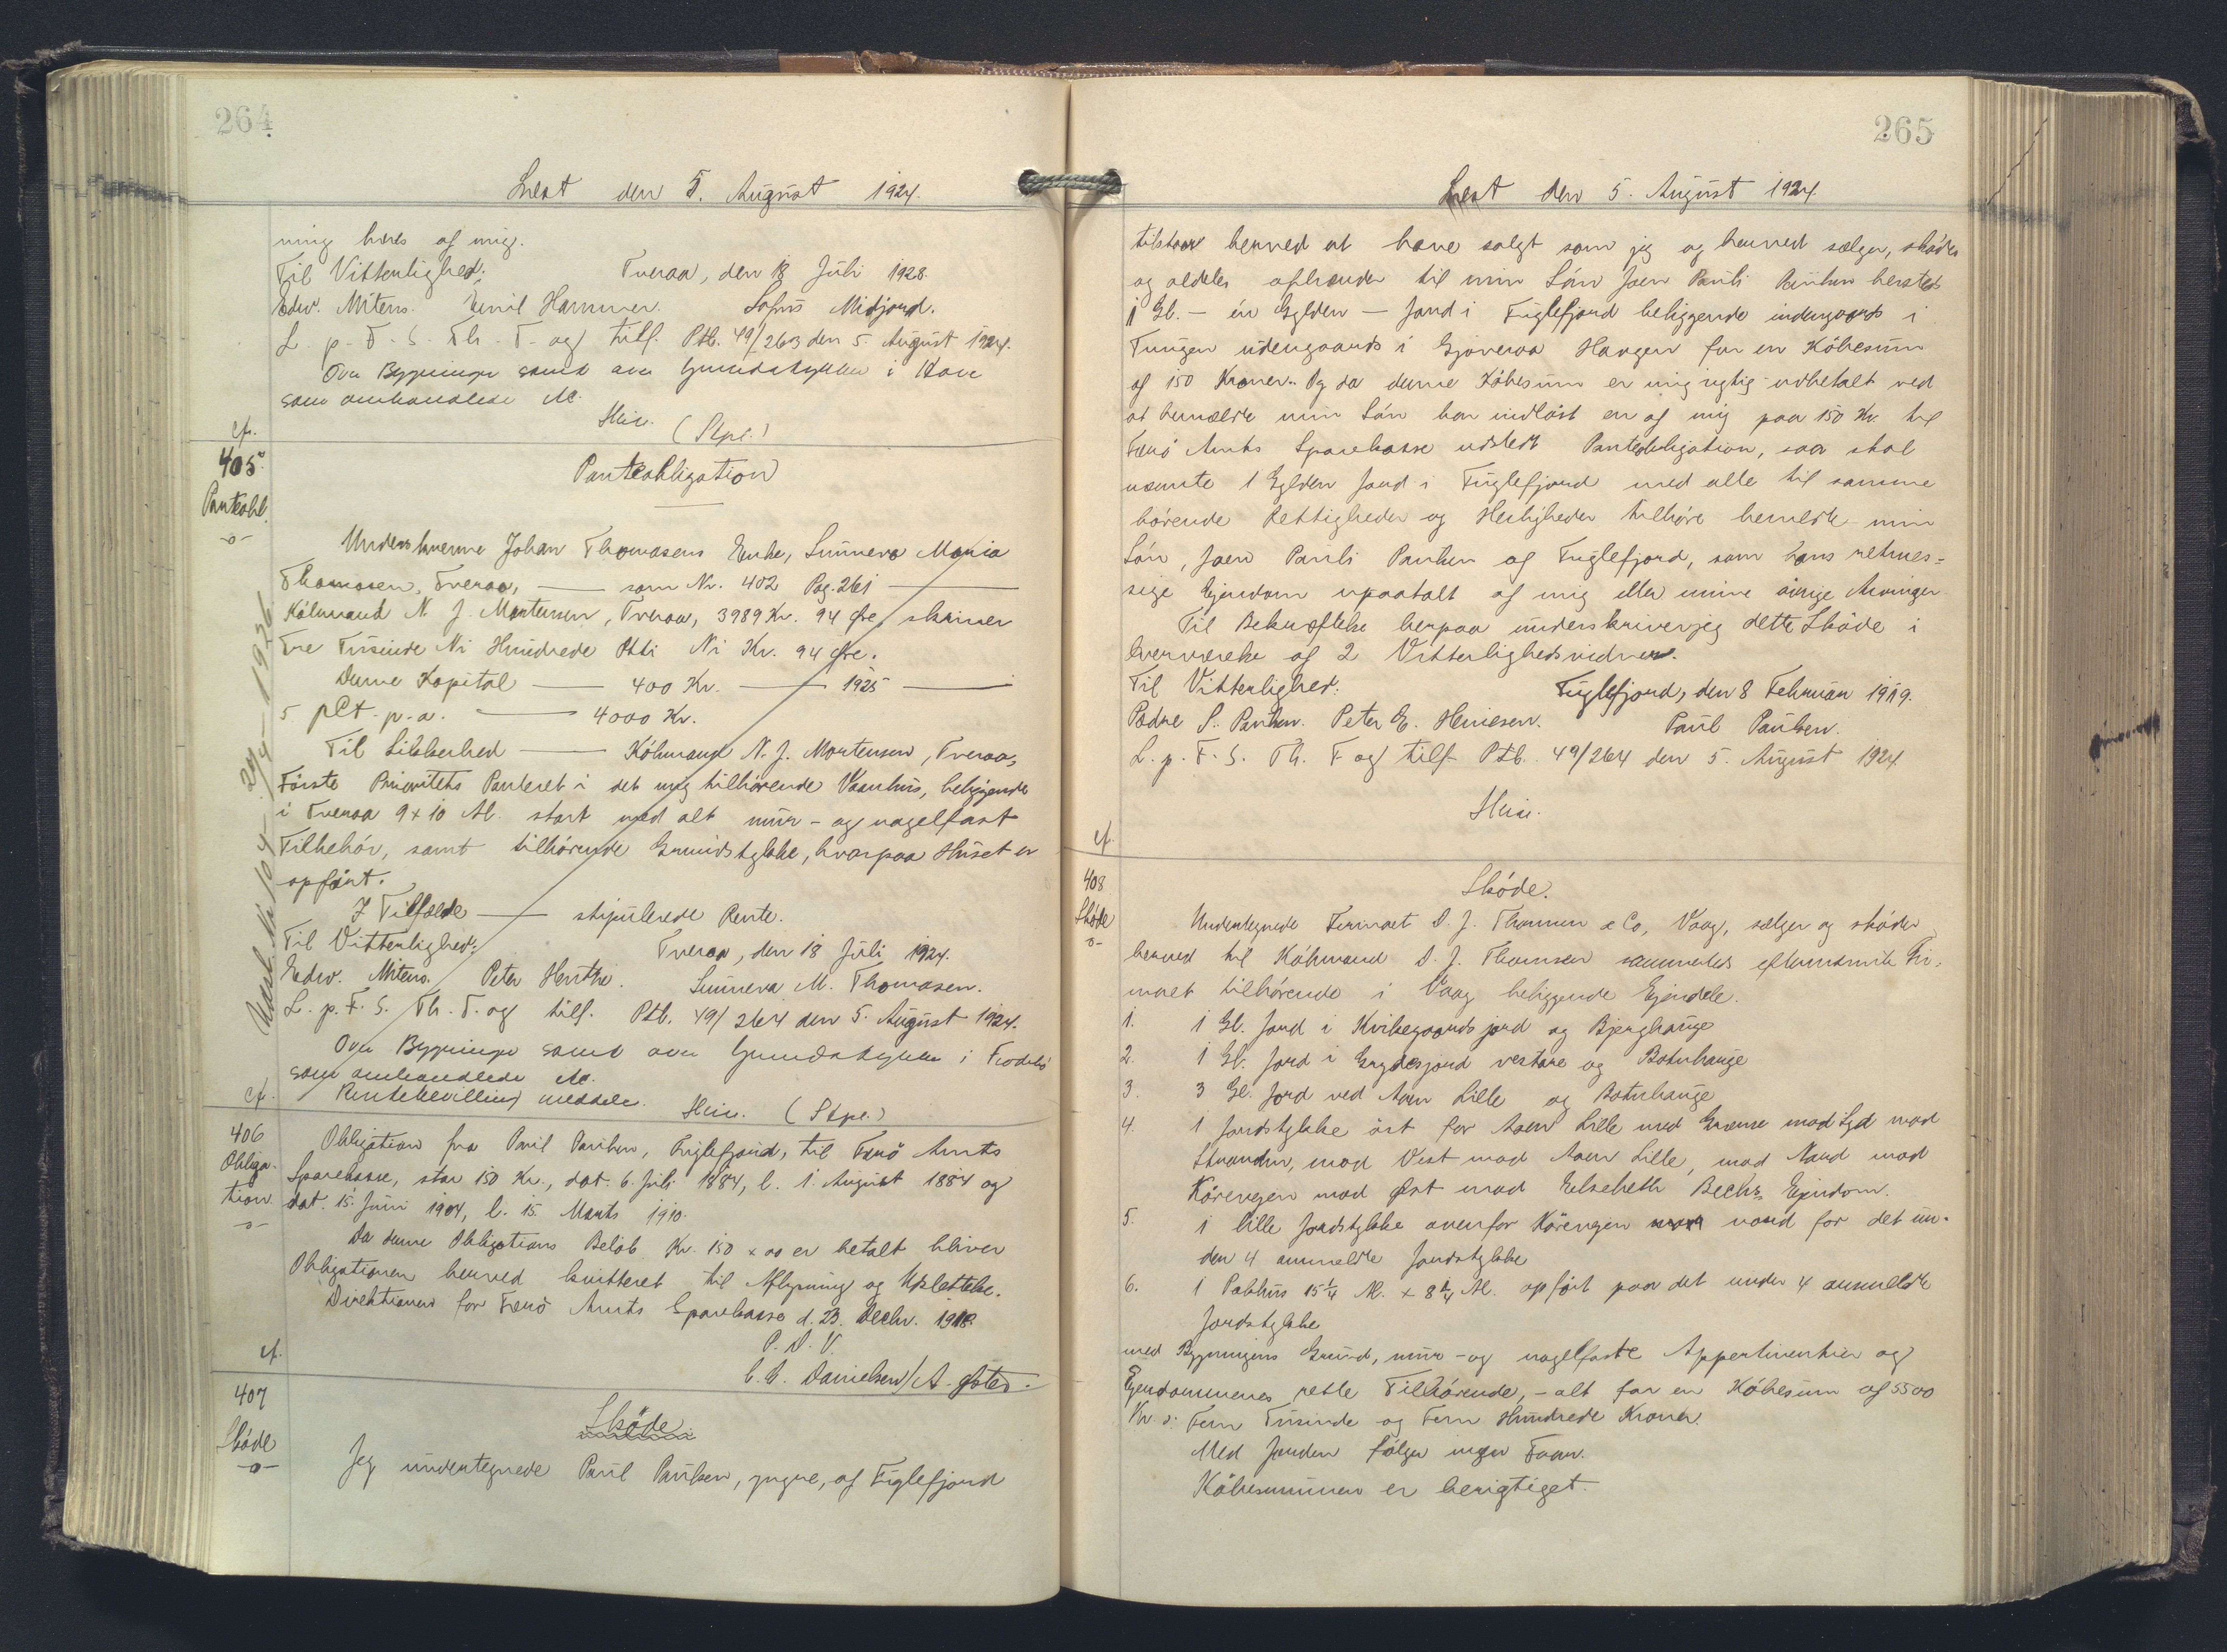 264
Læst den 5. August 1924.
ning hæves af mig.
Til Vitterlighed: Tveraa, den 18 Juli 1928.
Edw. Mitens. Emil Hammer. Sofus Midjord.
L. p. F. S. Th. T. og tilf. Ptb. 49/263 den 5. August 1924.
Over Bygninger samt over Grundstykker i Hove
som omhandlede M.
cfr. Heise. (Stpl.)
405.
Pantobl.
-o-
Pantobligation
Underskrevne Johan Thomasens Enke, Sunneva Maria
Thomasen, Tveraa, — som Nr. 402 Pag. 261 —
Købmand N. J. Mortensen, Tveraa, 3989 Kr. 94 Øre, skriver
Tre Tusinde Ni Hundrede Otti Ni Kr. 94 Øre.
Denne Kapital — 400 Kr. — 1925 —
5 pCt. p. a. — 4000 Kr.
Til Sikkerhed — Købmand N. J. Mortensen, Tveraa,
Første Prioritets Panteret i det mig tilhørende Vaanhus, beliggende
i Tveraa 9 x 10 Al. stort med alt mur- og nagelfast
Tilbehør, samt tilhørende Grundstykke, hvorpaa Huset er
opført.
I Tilfælde — stipulerede Rente.
Til Vitterlighed: Tveraa, den 18 Juli 1924.
Edw. Mitens. Peter Hentze. Sunneva M. Thomasen.
L. p. F. S. Th. T. og tilf. Ptb. 49/264 den 5. August 1924.
Over Bygninger samt over Grundstykker i Frodebø
som omhandlede M.
cfr. Rentebevilling meddele. Heise. (Stpl.)
Udsl. Nr 104 - 24/4 - 1926
406
Obliga-
tion
-o-
Obligation fra Poul Poulsen, Fuglefjord, til Færø Amts
Sparekasse, stor 150 Kr., dat. 6. Juli 1884, l. 1. August 1884 og
dat. 15. Juni 1904, l. 15. Marts 1910.
Da denne Obligations Beløb Kr. 150 x 00 er betalt bliver
Obligationen herved kvitteret til Aflysning og Udslettelse.
Direktionen for Færø Amts Sparekasse d. 23. Decbr. 1918.
P. D. V.
cf. C. C. Danielsen / A.
407
Skøde
-o-
Skøde.
Jeg undertegnede Poul Poulsen, yngre, af Fuglefjord
265
Læst den 5. August 1924.
tilstaar herved at have solgt som jeg og herved sælger, skøder
og aldeles afhænder til min Søn Joen Pauli Poulsen hersteds
1 Gl. — én Gylden — Jord i Fuglefjord beliggende indengaards i
Tungen udengaards i Gjoveraa Haugen for en Købesum
af 150 Kroner. Og da denne Købesum er mig rigtig udbetalt ved
at bemeldte min Søn har indløst en af mig paa 150 Kr. til
Færø Amts Sparekasse udstedt Panteobligation, saa skal
nævnte 1 Gylden Jord i Fuglefjord med alle til samme
hørende Rettigheder og Herligheder tilhøre bemeldte min
Søn, Joen Pauli Poulsen af Fuglefjord, som hans retmæs=
sige Ejendom upaatalt af mig eller mine øvrige Arvinger.
Til Bekræftelse herpaa underskriver jeg dette Skøde i
Overværelse af 2 Vitterlighedsvidner.
Til Vitterlighed: Fuglefjord, den 8 Februar 1919.
Padne S. Poulsen. Peter E. Heinesen. Poul Poulsen.
L. p. F. S. Th. T. og tilf. Ptb. 49/264 den 5. August 1924
Heise.
cf.
408
Skøde
-o-
Skøde.
Undertegnede Firmaet D. J. Thomsen & Co, Vaag, sælger og skøder
herved til Købmand D. J. Thomsen sammesteds efternævnte Fir-
maet tilhørende i Vaag beliggende Ejendele.
1. 1 Gl. Jord i Kvikegaardsjord og Bjerghauge
2. 1 Gl. Jord i Grydesjord vestare og Botnhauge
3. 3 Gl. Jord ved Aaen Lille og Botnhauge
4. 1 Jordstykke øst for Aaen Lille med Grænse mod Syd mod
Stranden, mod Vest mod Aaen Lille, mod Nord mod
Kørevejen mod Øst mod Elsebeth Bechs Ejendom.
5. 1 lille Jordstykke ovenfor Kørevejen nord for det un-
der 4 anmeldte Jordstykke
6. 1 Pakhus 15¼ Al. x 8¼ Al. opført paa det under 4 anmeldte
Jordstykke
med Bygningens Grund, mur- og nagelfaste Appertinentier og
Ejendommenes rette Tilhørende, - alt for en Købesum af 5500
Kr. s: Fem Tusinde og Fem Hundrede Kroner.
Med Jorden følger ingen Faar.
Købesummen er berigtiget.